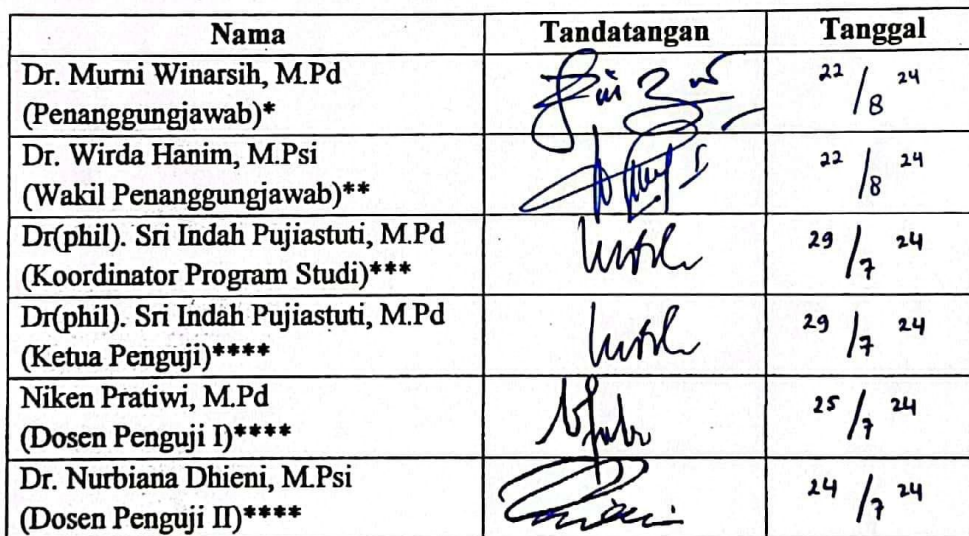 Nama Tandatangan Tanggal
Dr. Murni Winarsih, M.Pd
(Penanggungjawab)* 22/8 24
Dr. Wirda Hanim, M.Psi
(Wakil Penanggungjawab)** 22/8 24
Dr(phil). Sri Indah Pujiastuti, M.Pd
(Koordinator Program Studi)*** 29/7 24
Dr(phil). Sri Indah Pujiastuti, M.Pd
(Ketua Penguji)**** 29/7 24
Niken Pratiwi, M.Pd
(Dosen Penguji I)**** 25/7 24
Dr. Nurbiana Dhieni, M.Psi
(Dosen Penguji II)**** 24/7 24